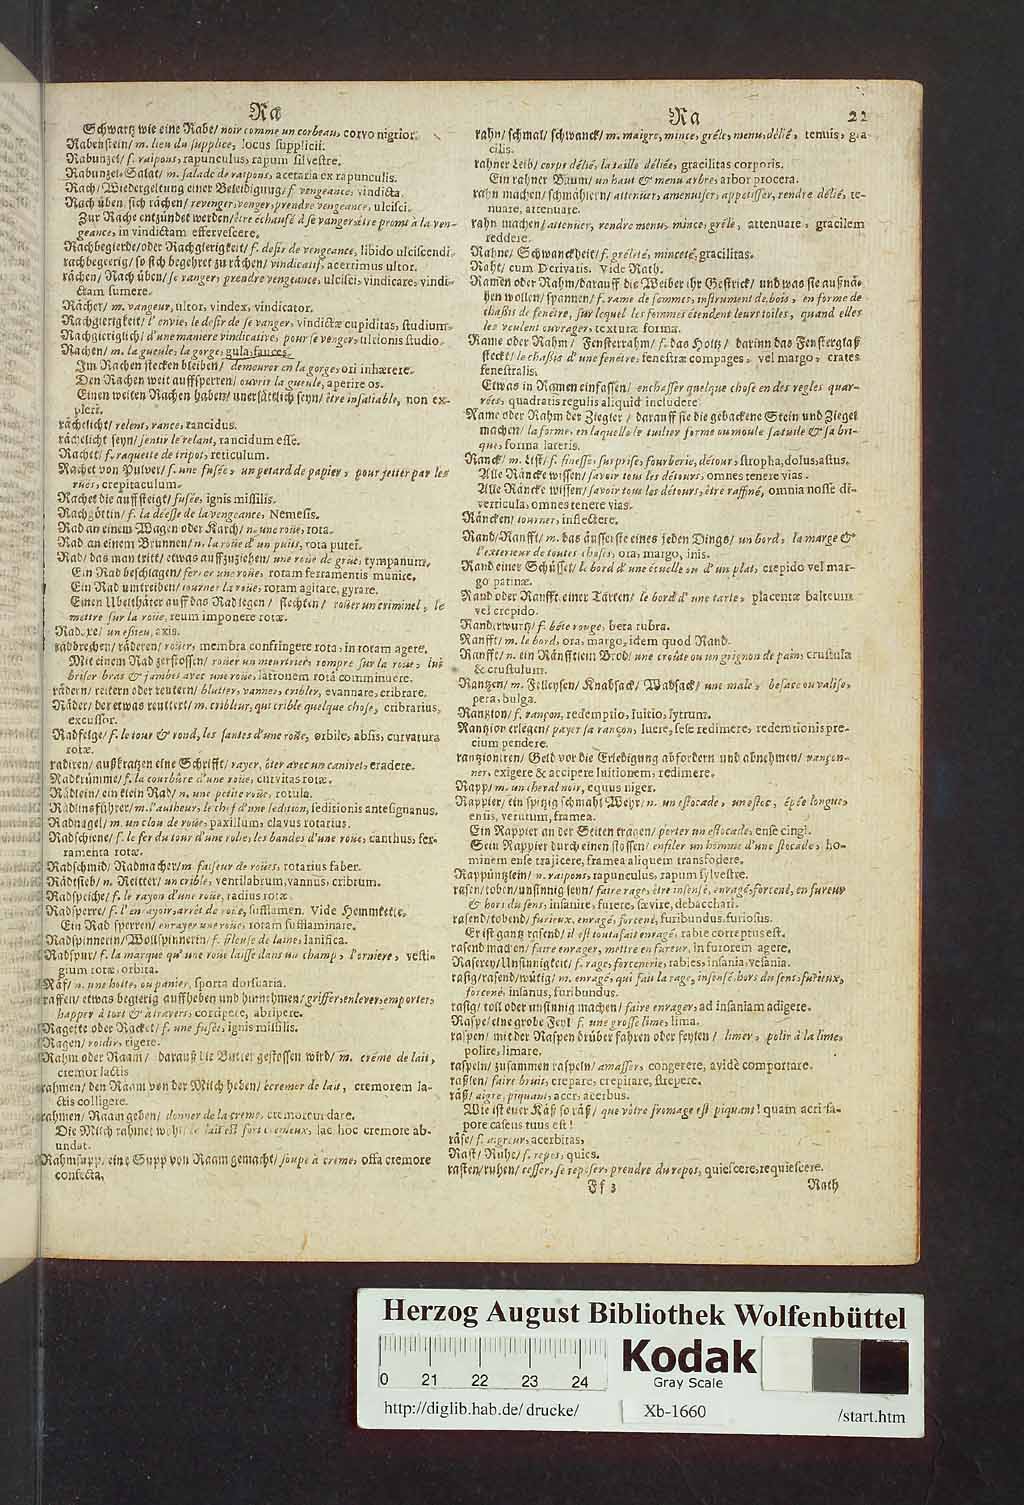 Ra
Schwartz wie eine Rabe/ noir comme un corbeau, corvo nigrior.
Rabenstein/ m. lieu du supplice, locus supplicii.
Rabunzel/ f. raipons, rapunculus, rapum silvestre.
Rabunzel-Salat/ m. salade de raipons, acetaria ex rapunculis.
Rach/ Wiedergeltung einer Beleidigung/ f. vengeance, vindicta.
Rach üben, sich rächen/ revenger, venger, prendre vengeance, ulcisci.
Zur Rache entzündet werden/ être échaufé à se vanger, être promt à la ven-
geance, in vindictam effervescere.
Rachbegierde/ oder Rachgierigkeit/ f. desir de vengeance, libido ulciscendi.
rachbegierig/ so sich begehret zu rächen/ vindicatif, acerrimus ultor.
rächen/ Rach üben/ se vanger, prendre vengeance, ulcisci, vindicare, vindi-
ctam sumere.
Rächer/ m. vangeur, ultor, vindex, vindicator.
Rachgierigkeit/ l'envie, le desir de se vanger, vindictæ cupiditas, studium.
Rachgieriglich/ d'une maniere vindicative, pour se venger, ultionis studio.
Rachen/ m. la gueule, la gorge, gula, fauces.
Im Rachen stecken bleiben/ demourer en la gorge, ori inhærere.
Den Rachen weit auffsperren/ ouvrir la gueule, aperire os.
Einen weiten Rachen haben/ unersättlich seyn/ être insatiable, non ex-
pleri.
rächelicht/ relent, rance, rancidus.
rächelicht seyn/ sentir le relant, rancidum esse.
Rachet/ f. raquette de tripot, reticulum.
Rachet von Pulver/ f. une fusée, un petard de papier, pour jetter par les
rües, crepitaculum.
Rachet die auffsteigt/ fusée, ignis missilis.
Rachgöttin/ f. la déesse de la vengeance, Nemesis.
Rad an einem Wagen oder Karch/ n. une roüe, rota.
Rad an einem Brunnen/ n. la roüe d'un puits, rota putei.
Rad/ das man tritt/ etwas auffzuziehen/ une roüe de grue, tympanum.
Ein Rad beschlagen/ ferrer une roüe, rotam ferramentis munire.
Ein Rad umtreiben/ tourner la roüe, rotam agitare, gyrare.
Einen Ubelthäter auff das Rad legen/ flechten/ roüer un criminel, le
mettre sur la roüe, reum imponere rotæ.
Rad-axe/ un essieu, axis.
radbrechen/ räderen/ roüer, membra confringere rota, in rotam agere.
Mit einem Rad zerstossen/ roüer un meurtrier, rompre sur la roüe, lui
briser bras & jambes avec une roüe, latronem rotâ comminuere.
rädern/ reitern oder reutern/ blutter, vanner, cribler, evannare, cribrare.
Räder/ der etwas reuttert/ m. cribleur, qui crible quelque chose, cribrarius,
excussor.
Radfelge/ f. le tour & rond, les jantes d'une roüe, orbile, absis, curvatura
rotæ.
radiren/ außkratzen eine Schrifft/ rayer, ôter avec un canivet, eradere.
Radkrümme/ f. la courbûre d'une roüe, curvitas rotæ.
Rädlein/ ein klein Rad/ n. une petite roüe, rotula.
Rädlinsführer/ m. l'autheur, le chef d'une sedition, seditionis antesignanus.
Radnagel/ m. un clou de roüe, paxillum, clavus rotarius.
Radschiene/ f. le fer du tour d'une robe, les bandes d'une roüe, canthus, fer-
ramenta rotæ.
Radschmid/ Radmacher/ m. faiseur de roües, rotarius faber.
Rädtsieb/ n. Reitter/ un crible, ventilabrum, vannus, cribrum.
Radspeiche/ f. le rayon d'une roüe, radius rotæ.
Radsperre/ f. l'enrayoir, arrêt de roüe, sufflamen. Vide Hemmkette.
Ein Rad sperren/ enrayer une roüe, rotam sufflaminare.
Radspinnerin/ Wollspinnerin/ f. fileuse de laine, lanifica.
Radspur/ f. la marque qu'une roue laisse dans un champ, l'orniere, vesti-
gium rotæ, orbita.
Räf/ n. une hotte, ou panier, sporta dorsuaria.
raffen/ etwas begierig auffheben und hinnehmen/ griffer, enlever, emporter,
happer à tort & à travers, corripere, abripere.
Ragette oder Racket/ f. une fusée, ignis missilis.
Ragen/ roidir, rigere.
Rahm oder Raam/ darauß die Butter gestossen wird/ m. créme de lait,
cremor lactis
rahmen/ den Raam von der Milch heben/ écremer de lait, cremorem la-
ctis colligere.
rahmen/ Raam geben/ donner de la creme, cremorem dare.
Die Milch rahmet wohl/ le lait est fort cremeux, lac hoc cremore ab-
undat.
Rahmsupp, eine Supp von Raam gemacht/ soupe à creme, offa cremore
confecta.
Ra
22
rahn/ schmal/ schwanck/ m. maigre, mince, gréle, menu, délié, tenuis, gra-
cilis.
rahner Leib/ corps délié, la taille déliée, gracilitas corporis.
Ein rahner Baum/ un haut & menu arbre, arbor procera.
rahn machen/ schmählern/ attenuer, amenuiser, appetisser, rendre délié, te-
nuare, attenuare.
rahn machen/ attenuer, rendre menu, mince, gréle, attenuare, gracilem
reddere.
Rahne/ Schwanckheit/ f. gréleté, minceté, gracilitas.
Raht/ cum Derivatis. Vide Rath.
Ramen oder Rahm/ darauff die Weiber ihr Gestrick/ und was sie aufnä-
hen wollen/ spannen/ f. rame de femmes, instrument de bois, en forme de
chassis de fenétre, sur lequel les femmes étendent leurs toiles, quand elles
les veulent ouvrager, texturæ forma.
Rame oder Rahm/ Fensterrahm/ f. das Holtz/ darinn das Fensterglaß
steckt/ le chassis d'une fenétre, fenestræ compages, vel margo, crates
fenestralis.
Etwas in Ramen einfassen/ enchasser quelque chose en des regles quar-
rées, quadratis regulis aliquid includere.
Rame oder Rahm der Ziegler/ darauff sie die gebackene Stein und Ziegel
machen/ la forme, en laquelle le tuilier forme ou moule sa tuile & sa bri-
que, forma lateris.
Ranck/ m. List/ f. finesse, surprise, fourberie, détour, stropha, dolus, astus.
Alle Räncke wissen/ savoir tous les détours, omnes tenere vias.
Alle Räncke wissen/ savoir tous les détours, être raffiné, omnia nosse di-
verticula, omnes tenere vias.
Räncken/ tourner, inflectere.
Rand/ Ranfft/ m. das äusserste eines jeden Dings/ un bord, la marge &
l'exterieur de toutes choses, ora, margo, inis.
Rand einer Schüssel/ le bord d'une écuelle ou d'un plat, crepido vel mar-
go patinæ.
Rand oder Ranfft einer Tarten/ le bord d'une tarte, placentæ balteum
vel crepido.
Randerwurtz/ f. béte rouge, beta rubra.
Ranfft/ m. le bord, ora, margo, idem quod Rand.
Ranfft/ n. ein Ränfftlein Brod/ une croûte ou un grignon de pain, crustula
& crustulum.
Rantzen/ m. Felleysen/ Knabsack/ Wadsack/ une male, besace ou valise,
pera, bulga.
Rantzion/ f. rançon, redemptio, luitio, lytrum.
Rantzion erlegen/ payer sa rançon, luere, sese redimere, redemtionis pre-
cium pendere.
rantzioniren/ Geld vor die Erledigung abfordern und abnehmen/ rançon-
ner, exigere & accipere luitionem, redimere.
Rapp/ m. un cheval noir, equus niger.
Rappier/ ein spitzig schmahl Wehr/ n. un estocade, un estoc, épée longue,
ensis, verutum, framea.
Ein Rappier an der Seiten tragen/ porter un estocade, ense cingi.
Sein Rappier durch einen stossen/ enfiler un homme d'une stocade, ho-
minem ense trajicere, framea aliquem transfodere.
Rappüntzlein/ n. raipons, rapunculus, rapum sylvestre.
rasen/ toben/ unsinnig seyn/ faire rage, être insensé, enragé, forcené, en fureur
& hors du sens, insanire, furere, sævire, debacchari.
rasend/ tobend/ furieux, enragé, forcené, furibundus, furiosus.
Er ist gantz rasend/ il est tout à fait enragé, rabie correptus est.
rasend machen/ faire enrager, mettre en fureur, in furorem agere.
Raserey/ Unsinnigkeit/ f. rage, forcenerie, rabies, insania, vesania.
rasig/ rasend/ wütig/ m. enragé, qui fait la rage, insensé, hors du sens, furieux,
forcené, insanus, furibundus.
rasig/ toll oder unsinnig machen/ faire enrager, ad insaniam adigere.
Raspe/ eine grobe Feyl/ f. une grosse lime, lima.
raspen/ mit der Raspen drüber fahren oder feylen/ limer, polir à la lime,
polire, limare.
raspeln/ zusammen raspeln/ amasser, congerere, avidè comportare.
raßlen/ faire bruit, crepare, crepitare, strepere.
räß/ aigre, piquant, acer, acerbus.
Wie ist euer Käß so räß/ que vôtre fromage est piquant! quam acri sa-
pore caseus tuus est!
räse/ f. aigreur, acerbitas,
Rast/ Ruhe/ f. repos, quies.
rasten/ ruhen/ cesser, se reposer, prendre du repos, quiescere, requiescere.
Ff 3
Rath
Herzog August Bibliothek Wolfenbüttel
Kodak
Gray Scale
0 21 22 23 24
http://diglib.hab.de/drucke/
Xb-1660
/start.htm